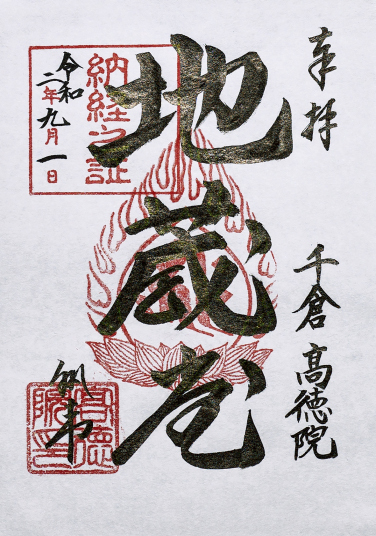 奉拝
千倉 高徳院
地蔵尊
納経之証
令和
二年九月一日
高徳院印